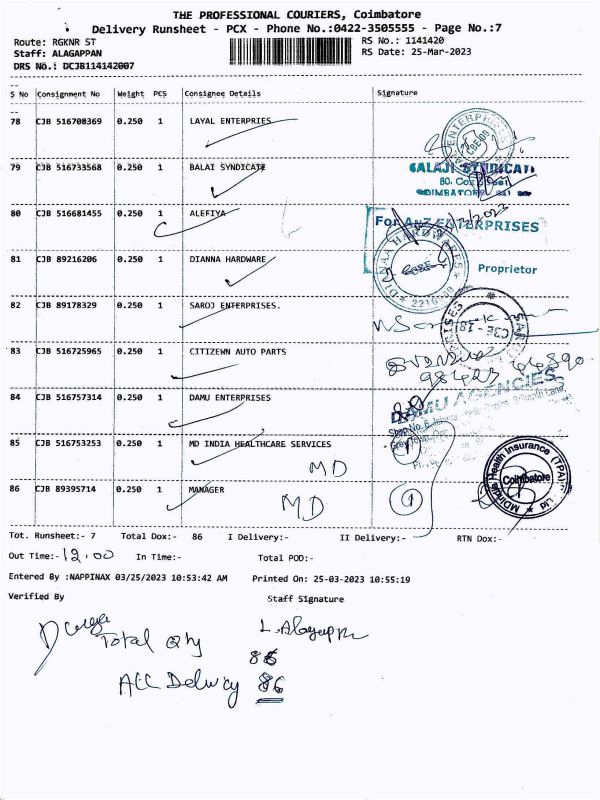 THE PROFESSIONAL COURIERS, Coimbatore
Delivery Runsheet - PCX - Phone No.:0422-3505555 - Page No.:7
Route: RGKNR ST
RS No.: 1141420
Staff: ALAGAPPAN
RS Date: 25-Mar-2023
DRS No.: DCJB114142007
S No Consignment No Weight PCS Consignee Details Signature
78 CJB 516708369 0.250 1 LAYAL ENTERPRIES
79 CJB 516733568 0.250 1 BALAI SYNDICATE
BALAJI SYNDICATE
80 CJB 516681455 0.250 1 ALEFIYA
For A-Z ENTERPRISES
81 CJB 89216206 0.250 1 DIANNA HARDWARE
DIANAA HARDWARES
Proprietor
82 CJB 89178329 0.250 1 SAROJ ENTERPRISES.
83 CJB 516725965 0.250 1 CITIZEWN AUTO PARTS
84 CJB 516757314 0.250 1 DAMU ENTERPRISES
DAMU AGENCIES
85 CJB 516753253 0.250 1 MD INDIA HEALTHCARE SERVICES
MD
MDIndia Health Insurance (TPA)
Coimbatore
86 CJB 89395714 0.250 1 MANAGER
MD 1
Tot. Runsheet:- 7 Total Dox:- 86 I Delivery:- II Delivery:- RTN Dox:-
Out Time:- 12.00 In Time:- Total POD:-
Entered By :NAPPINAX 03/25/2023 10:53:42 AM Printed On: 25-03-2023 10:55:19
Verified By Staff Signature
L. Alagappn
Total Qty 86
All Delivery 86